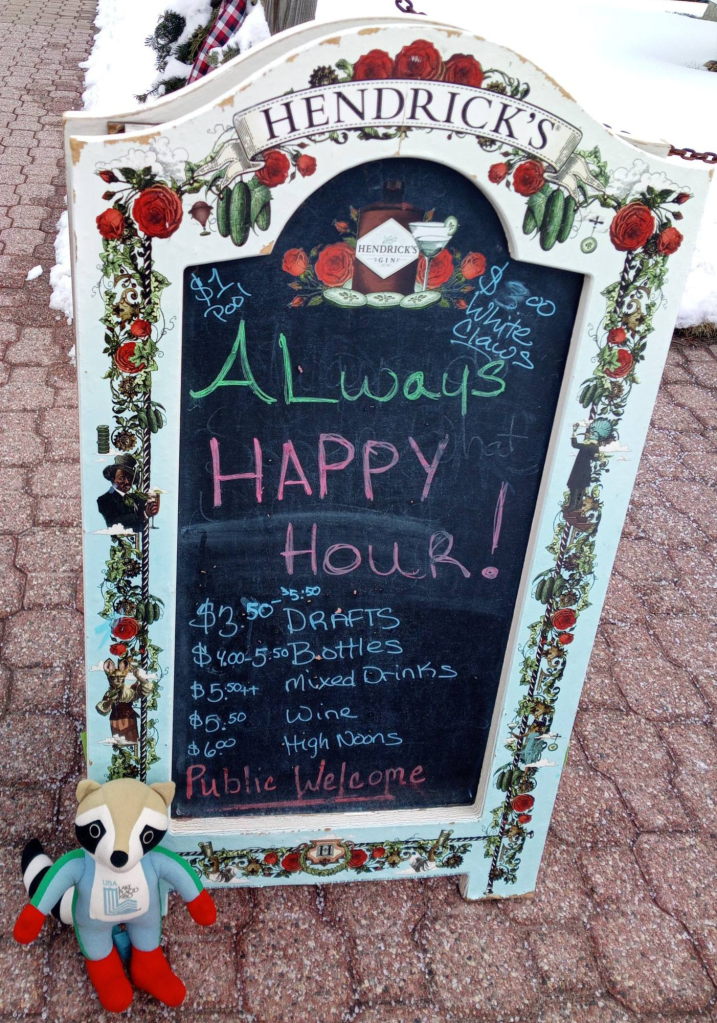 HENDRICK'S
HENDRICK'S
GIN
$1
Pool
$3.00
White
Claws
ALways
HAPPY
HOUR!
$3.50-$5.50 DRAFTS
$4.00-5.50 Bottles
$5.50++ Mixed Drinks
$5.50 Wine
$6.00 High Noons
Public Welcome
H
USA
LAKE
PLACID
1980